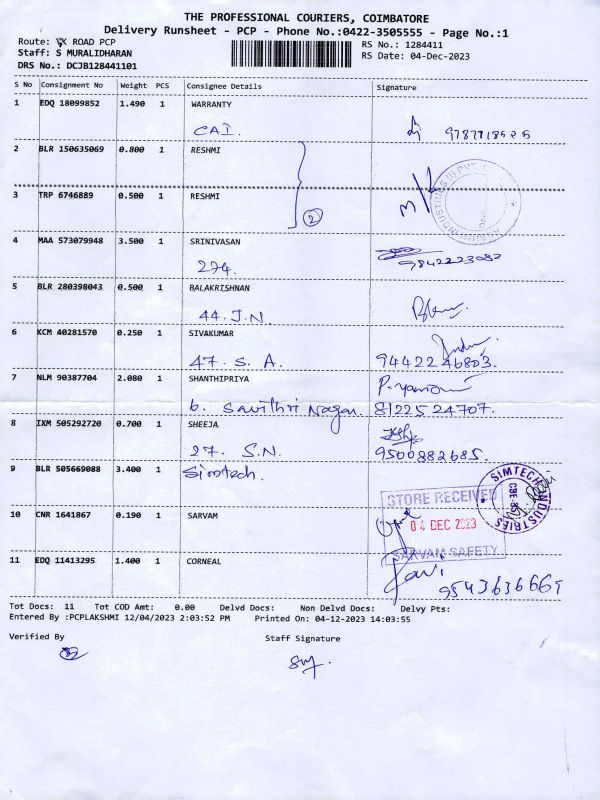 THE PROFESSIONAL COURIERS, COIMBATORE
Delivery Runsheet - PCP - Phone No.:0422-3505555 - Page No.:1
Route: ROAD PCP RS No.: 1284411
Staff: S MURALIDHARAN RS Date: 04-Dec-2023
DRS No.: DCJB128441101
S No Consignment No Weight PCS Consignee Details Signature
1 EDQ 18099852 1.490 1 WARRANTY
CAI.
2 BLR 150635069 0.800 1 RESHMI
3 TRP 6746889 0.500 1 RESHMI
2
4 MAA 573079948 3.500 1 SRINIVASAN
274. 9842223082
5 BLR 280398043 0.500 1 BALAKRISHNAN
44. J.N.
6 KCM 40281570 0.250 1 SIVAKUMAR
47. S. A. 9442246803.
7 NLM 90387704 2.080 1 SHANTHIPRIYA
6. Savithri Nagar. 8122524707.
8 IXM 505292720 0.700 1 SHEEJA
27. S.N. 9500882685.
9 BLR 505669088 3.400 1 Simtech.
SIMTECH INDUSTRIES
STORE RECEIVED
10 CNR 1641867 0.190 1 SARVAM
04 DEC 2023
SARVAM SAFETY
11 EDQ 11413295 1.400 1 CORNEAL
Ravi
Tot Docs: 11 Tot COD Amt: 0.00 Delvd Docs: Non Delvd Docs: Delvy Pts:
Entered By :PCPLAKSHMI 12/04/2023 2:03:52 PM Printed On: 04-12-2023 14:03:55
Verified By Staff Signature